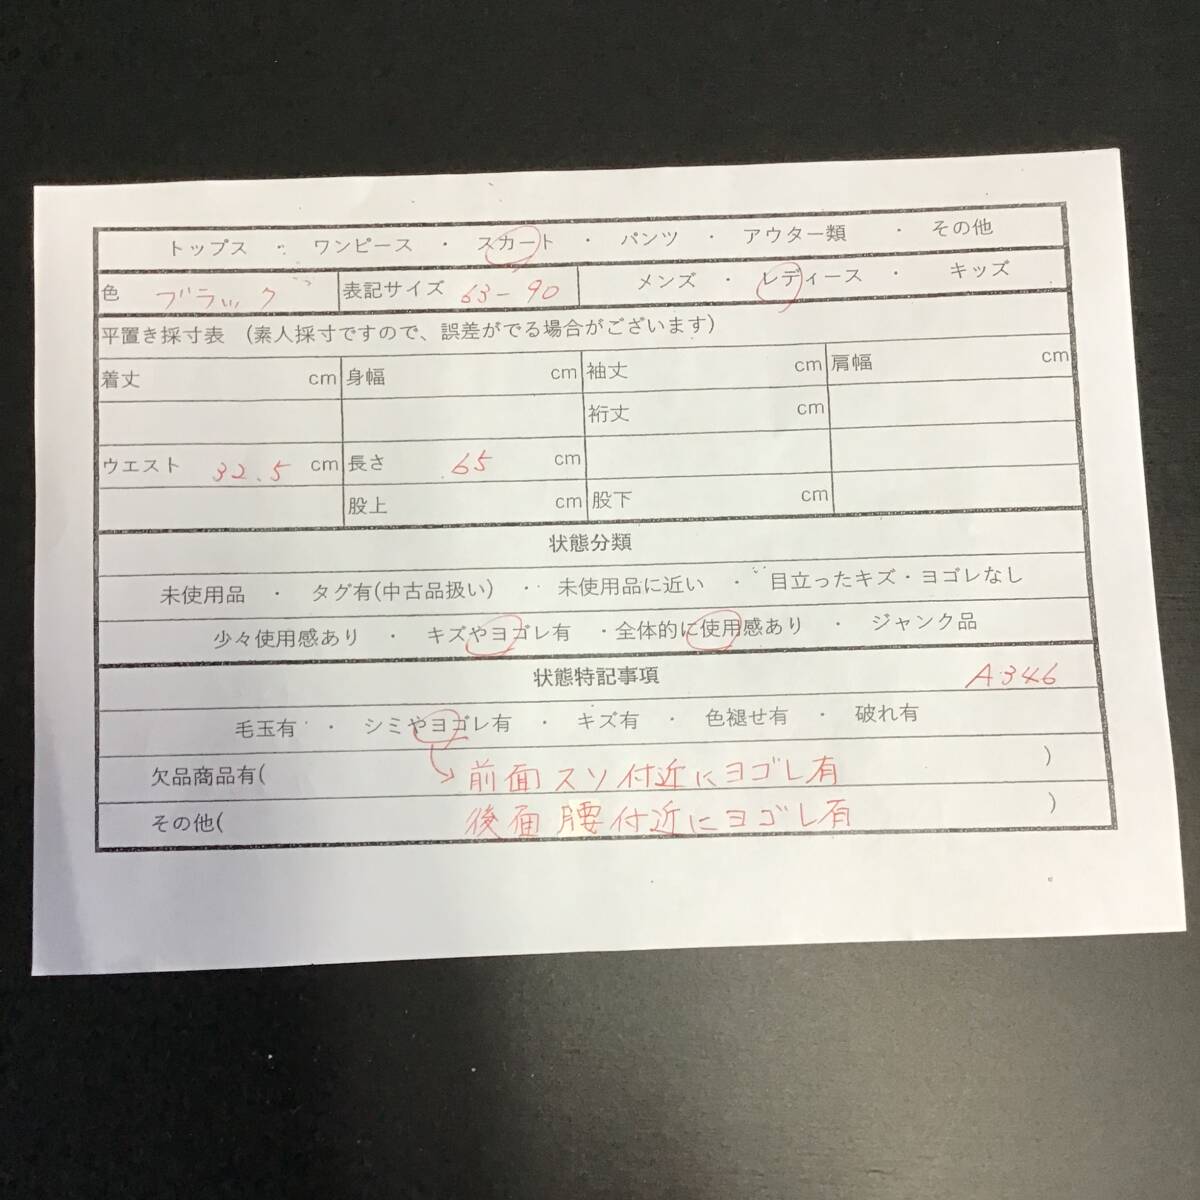 トップス ・ ワンピース ・ スカート ・ パンツ ・ アウター類 ・ その他
色 ブラック 表記サイズ 63-90 メンズ ・ レディース ・ キッズ
平置き採寸表 (素人採寸ですので、誤差がでる場合がございます)
着丈 cm 身幅 cm 袖丈 cm 肩幅 cm
裄丈 cm
ウエスト 32.5 cm 長さ 65 cm
股上 cm 股下 cm
状態分類
未使用品 ・ タグ有(中古品扱い) ・ 未使用品に近い ・ 目立ったキズ・ヨゴレなし
少々使用感あり ・ キズやヨゴレ有 ・全体的に使用感あり ・ ジャンク品
状態特記事項 A346
毛玉有 ・ シミやヨゴレ有 ・ キズ有 ・ 色褪せ有 ・ 破れ有
欠品商品有( 前面スソ付近にヨゴレ有 )
その他( 後面腰付近にヨゴレ有 )